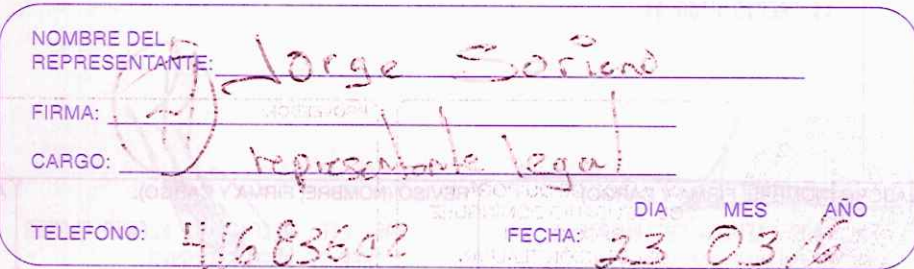 NOMBRE DEL
REPRESENTANTE: Jorge Soriano
FIRMA:
CARGO: representante legal
DIA MES AÑO
TELEFONO: 4683602 FECHA: 23 03 16